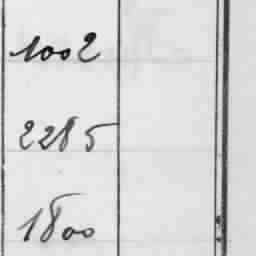 1002
2285
1800